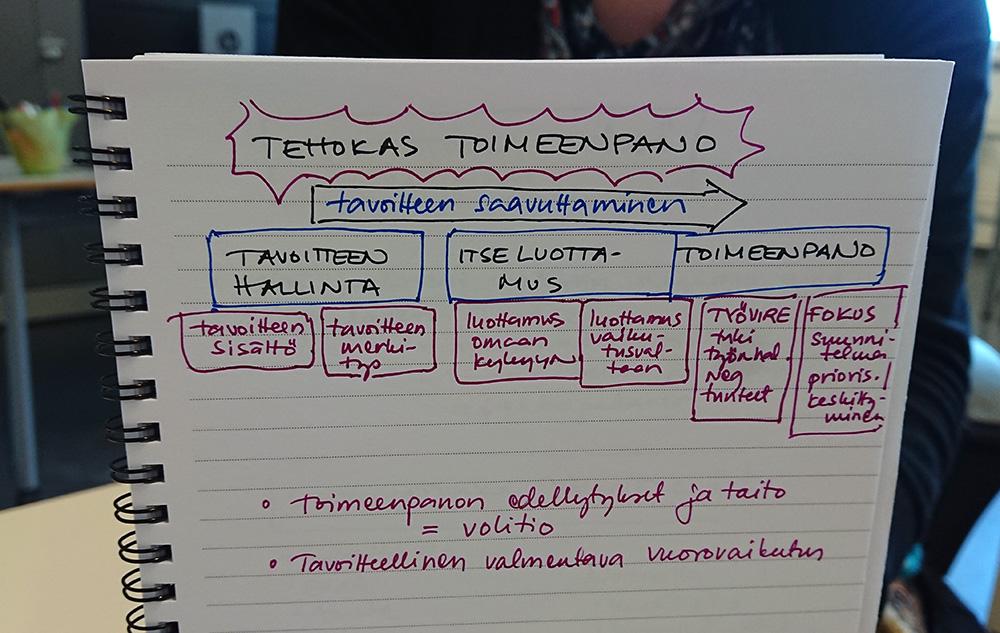 TEHOKAS TOIMEENPANO
tavoitteen saavuttaminen
TAVOITTEEN
HALLINTA
ITSE LUOTTA-
MUS
TOIMEENPANO
tavoitteen
sisältö
tavoitteen
merki-
tys
luottamus
omaan
kykyyn
luottamus
vaiku-
tusval-
taan
TYÖVIRE
tuki
työnhal.
Neg
tunteet
FOKUS
suunni-
telma
prioris.
keskitty-
minen
• Toimeenpanon edellytykset ja taito
= volitio
• Tavoitteellinen valmentava vuorovaikutus